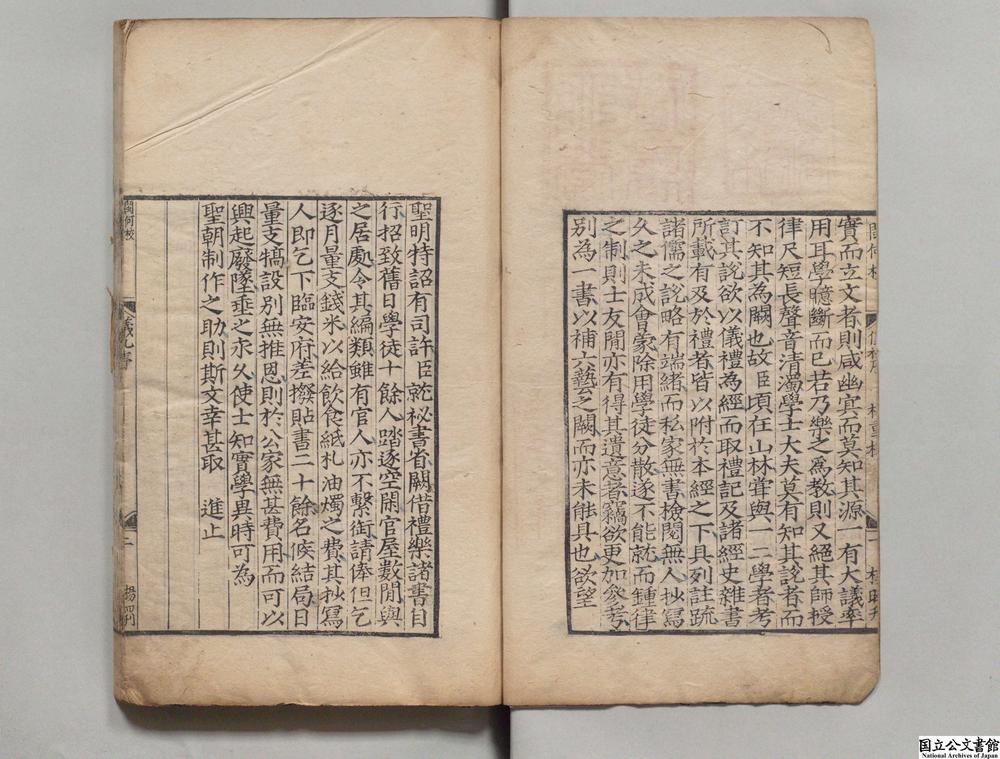 實而立文者則咸幽㝠而莫知其源一有大議率
用耳學臆斷而已若乃樂之爲教則又絕其師授
律尺短長聲音清濁學士大夫莫有知其說者而
不知其為闕也故臣頃在山林甞與一二學者考
訂其說欲以儀禮為經而取禮記及諸經史雜書
所載有及於禮者皆以附於本經之下具列註疏
諸儒之說略有端緒而私家無書檢閱無人抄寫
久之未成會蒙除用學徒分散遂不能就而鍾律
之制則士友間亦有得其遺意者竊欲更加叅考
別為一書以補六藝之闕而亦未能具也欲望
聖明特詔有司許臣就秘書省關借禮樂諸書自
行招致舊日學徒十餘人踏逐空閑官屋數間與
之居處令其編類雖有官人亦不繫銜請俸但乞
逐月量支錢米以給飲食紙札油燭之費其抄寫
人即乞下臨安府差撥貼書二十餘名候結局日
量支犒設別無推恩則於公家無甚費用而可以
興起廢墜垂之永久使士知實學異時可為
聖朝制作之助則斯文幸甚取 進止
閩何校
二
楊四刋
国立公文書館
National Archives of Japan